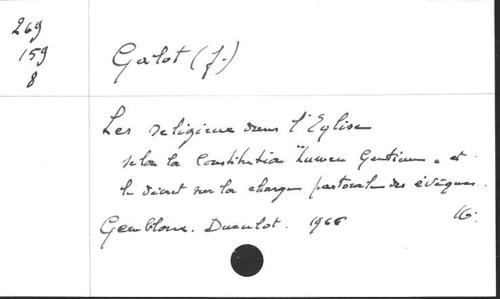 269
159
8
Galot (J.)
Les religieux dans l'Eglise
selon la Constitution "Lumen Gentium" et
le décret sur la charge pastorale des évêques.
Gembloux. Duculot. 1966
16.